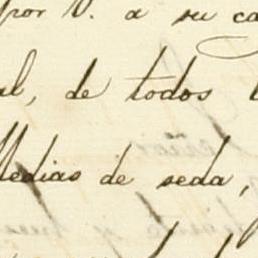 por V. a su ca
al, de todos
Medias de seda,